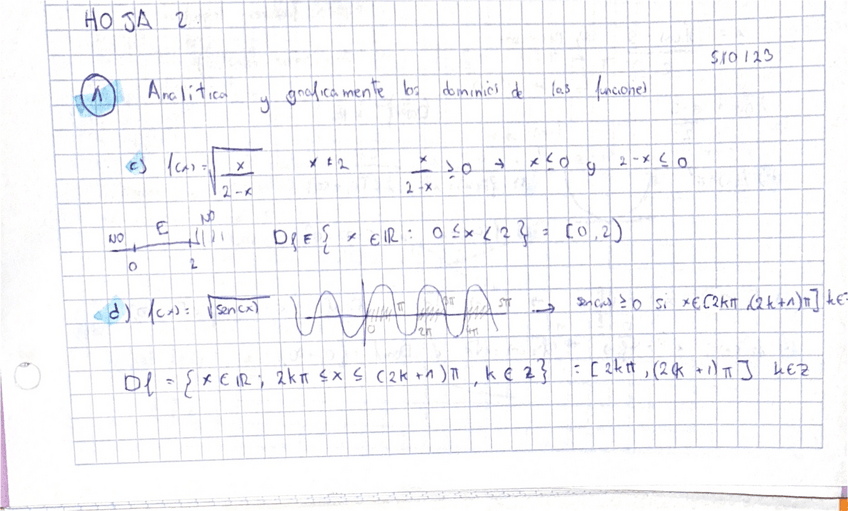 HOJA 2.
5/10/23
1 Analítica y graficamente los dominios de las funciones
c) f(x) = √(x/(2-x)) x ≠ 2 x/(2-x) ≥ 0 → x ≤ 0 y 2-x ≤ 0
NO E NO
0 2
Df = { x ∈ IR : 0 ≤ x < 2 } = [0,2)
d) f(x) = √sen(x) 0 π 2π 3π 4π 5π → sen(x) ≥ 0 si x ∈ [2kπ, (2k+1)π] k ∈ Z
Df = { x ∈ IR ; 2kπ ≤ x ≤ (2k+1)π , k ∈ Z } = [2kπ, (2k+1)π] k ∈ Z